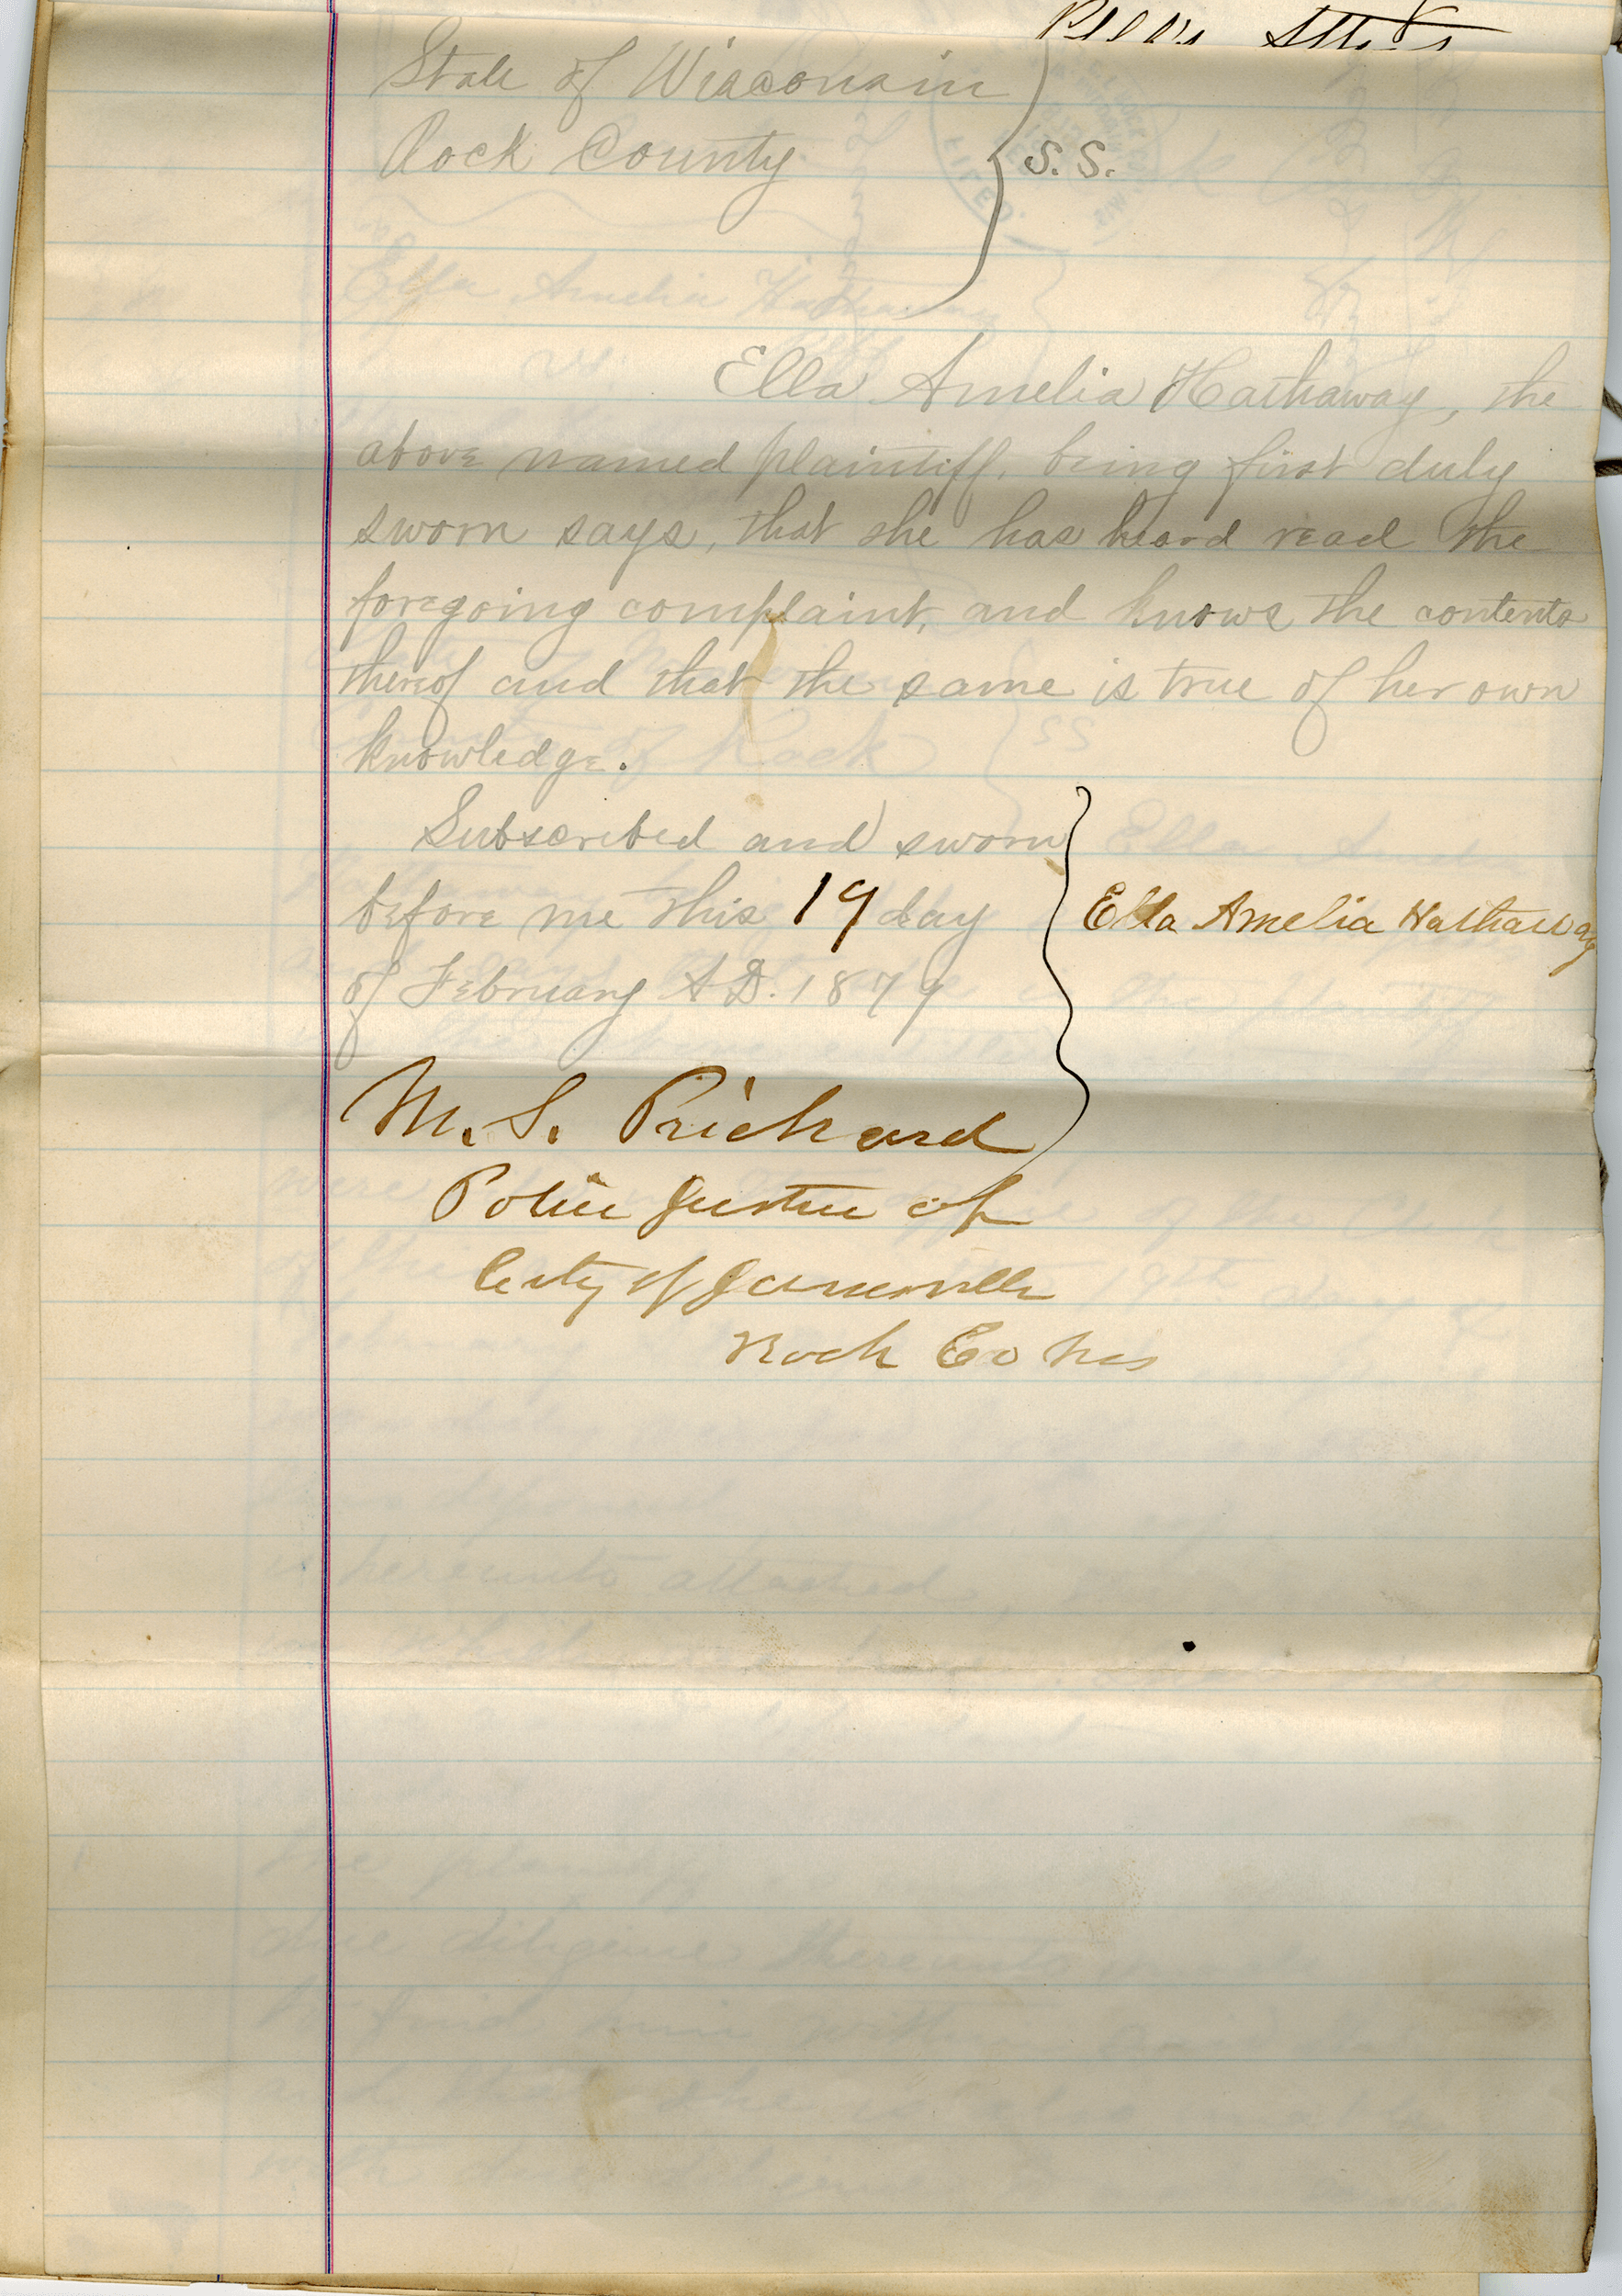 Plff's Atty's
State of Wisconsin
Rock County } S.S.
Ella Amelia Hathaway, the
above named plaintiff, being first duly
sworn says, that she has heard read the
foregoing complaint, and knows the contents
thereof and that the same is true of her own
knowledge.
Subscribed and sworn
before me this 19 day } Ella Amelia Hathaway
of February A.D. 1879
M. S. Prichard
Police Justice of
City of Janesville
Rock Co Wis